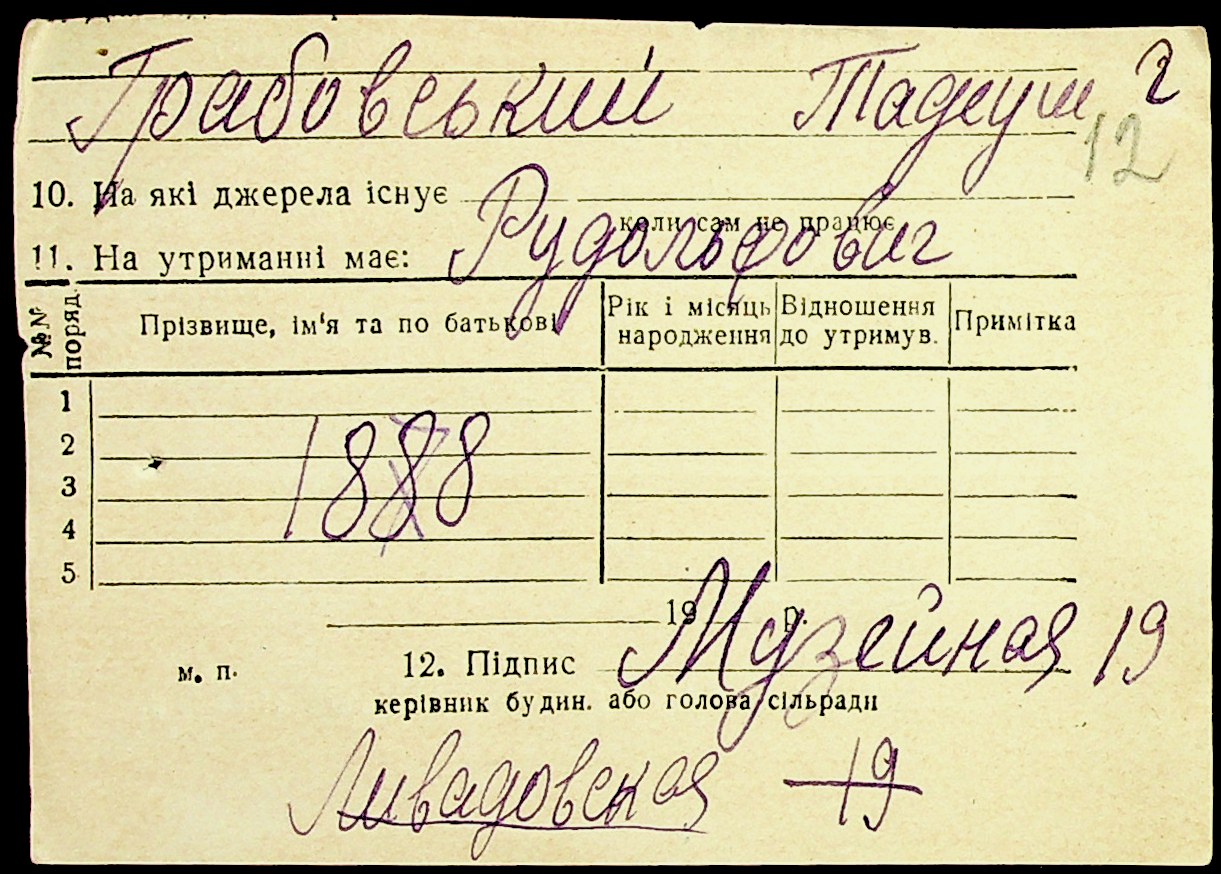 Грабовський Тадеуш 2
12
10. На які джерела існує
коли сам не працює
11. На утриманні має:
Рудольфович
№№ поряд.
Прізвище, ім'я та по батькові
Рік і місяць народження
Відношення до утримув.
Примітка
1
2
3
4
5
1888
19 р.
Музейная 19
м. п.
12. Підпис
керівник будин. або голова сільради
Ливадовская 19